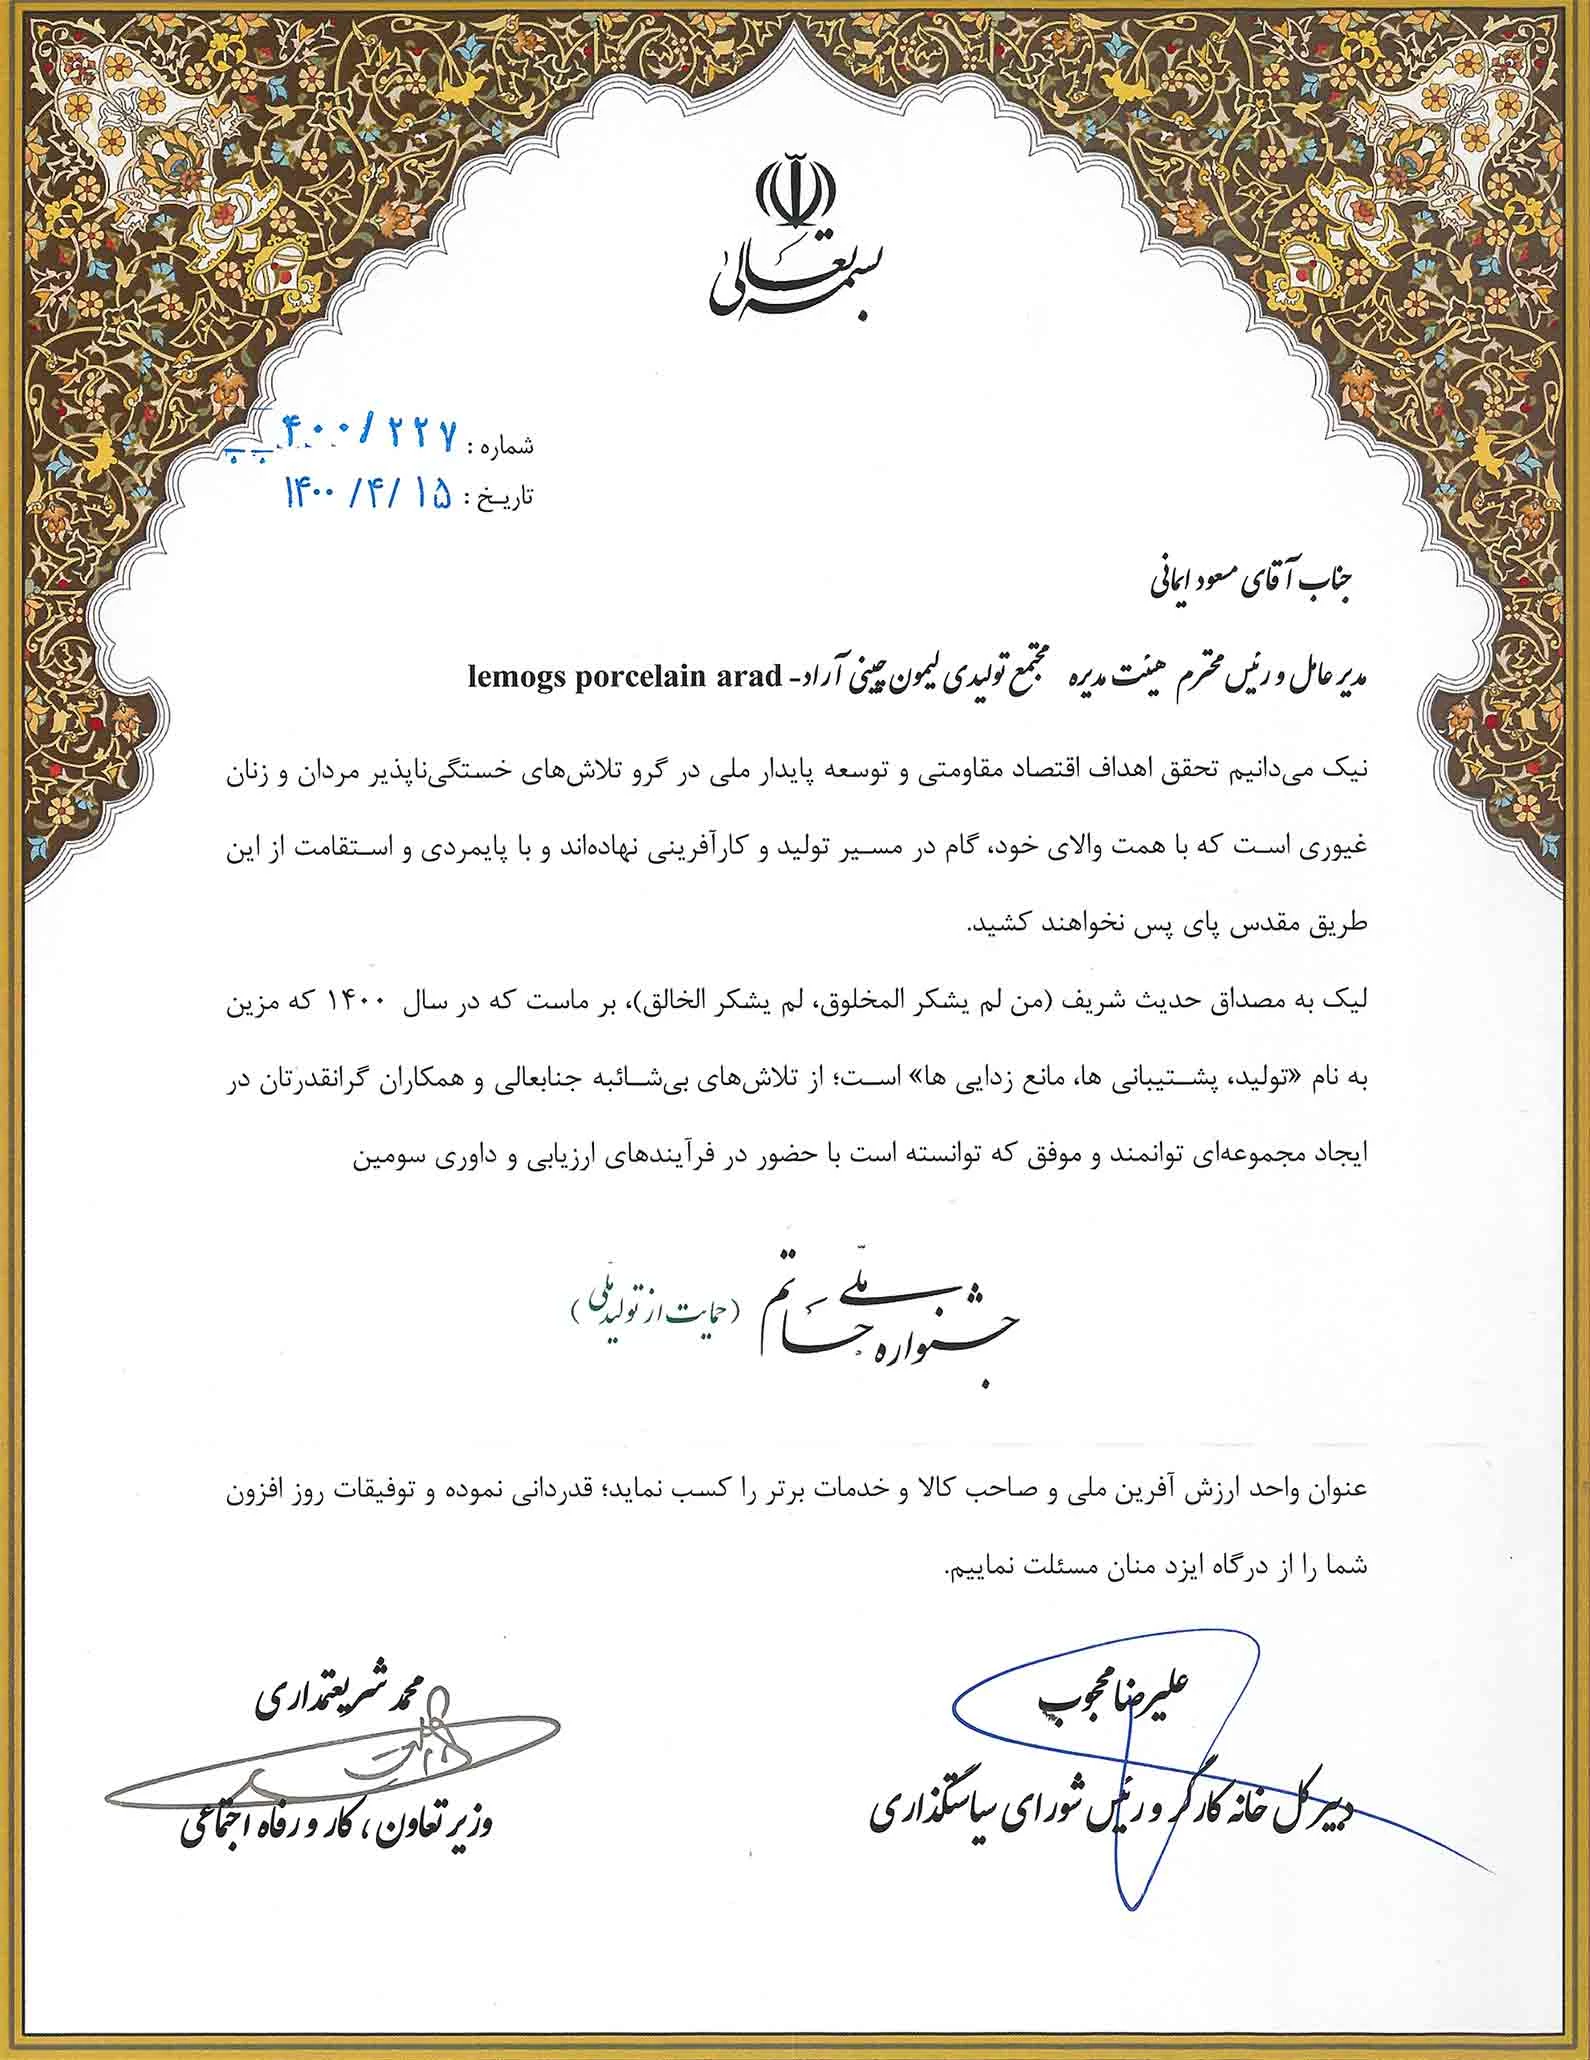 بسمه تعالی
شماره : ۴۰۰/۲۲۷
تاریـخ : ۱۴۰۰/۴/۱۵
جناب آقای مسعود ایمانی
مدیر عامل و رئیس محترم هیئت مدیره مجتمع تولیدی لیمون چینی آراد- lemogs porcelain arad
نیک می‌دانیم تحقق اهداف اقتصاد مقاومتی و توسعه پایدار ملی در گرو تلاش‌های خستگی‌ناپذیر مردان و زنان
غیوری اسـت که با همت والای خود، گام در مسـیر تولید و کارآفرینی نهاده‌اند و با پایمردی و اسـتقامت از این
طریق مقدس پای پس نخواهند کشید.
لیک به مصداق حدیث شریف (من لم یشکر المخلوق، لم یشکر الخالق)، بر ماست که در سال ۱۴۰۰ که مزین
به نام «تولید، پشـتیبانی ها، مانع زدایی ها» است؛ از تلاش‌های بی‌شـائبه جنابعالی و همکاران گرانقدرتان در
ایجاد مجموعه‌ای توانمند و موفق که توانسته است با حضور در فرآیندهای ارزیابی و داوری سومین
جشنواره ملّی حاتم (حمایت از تولید ملّی)
عنوان واحد ارزش آفرین ملی و صاحب کالا و خدمات برتر را کسب نماید؛ قدردانی نموده و توفیقات روز افزون
شما را از درگاه ایزد منان مسئلت نماییم.
علیرضا محجوب
دبیر کل خانه کارگر و رئیس شورای سیاستگذاری
محمد شریعتمداری
وزیر تعاون، کار و رفاه اجتماعی